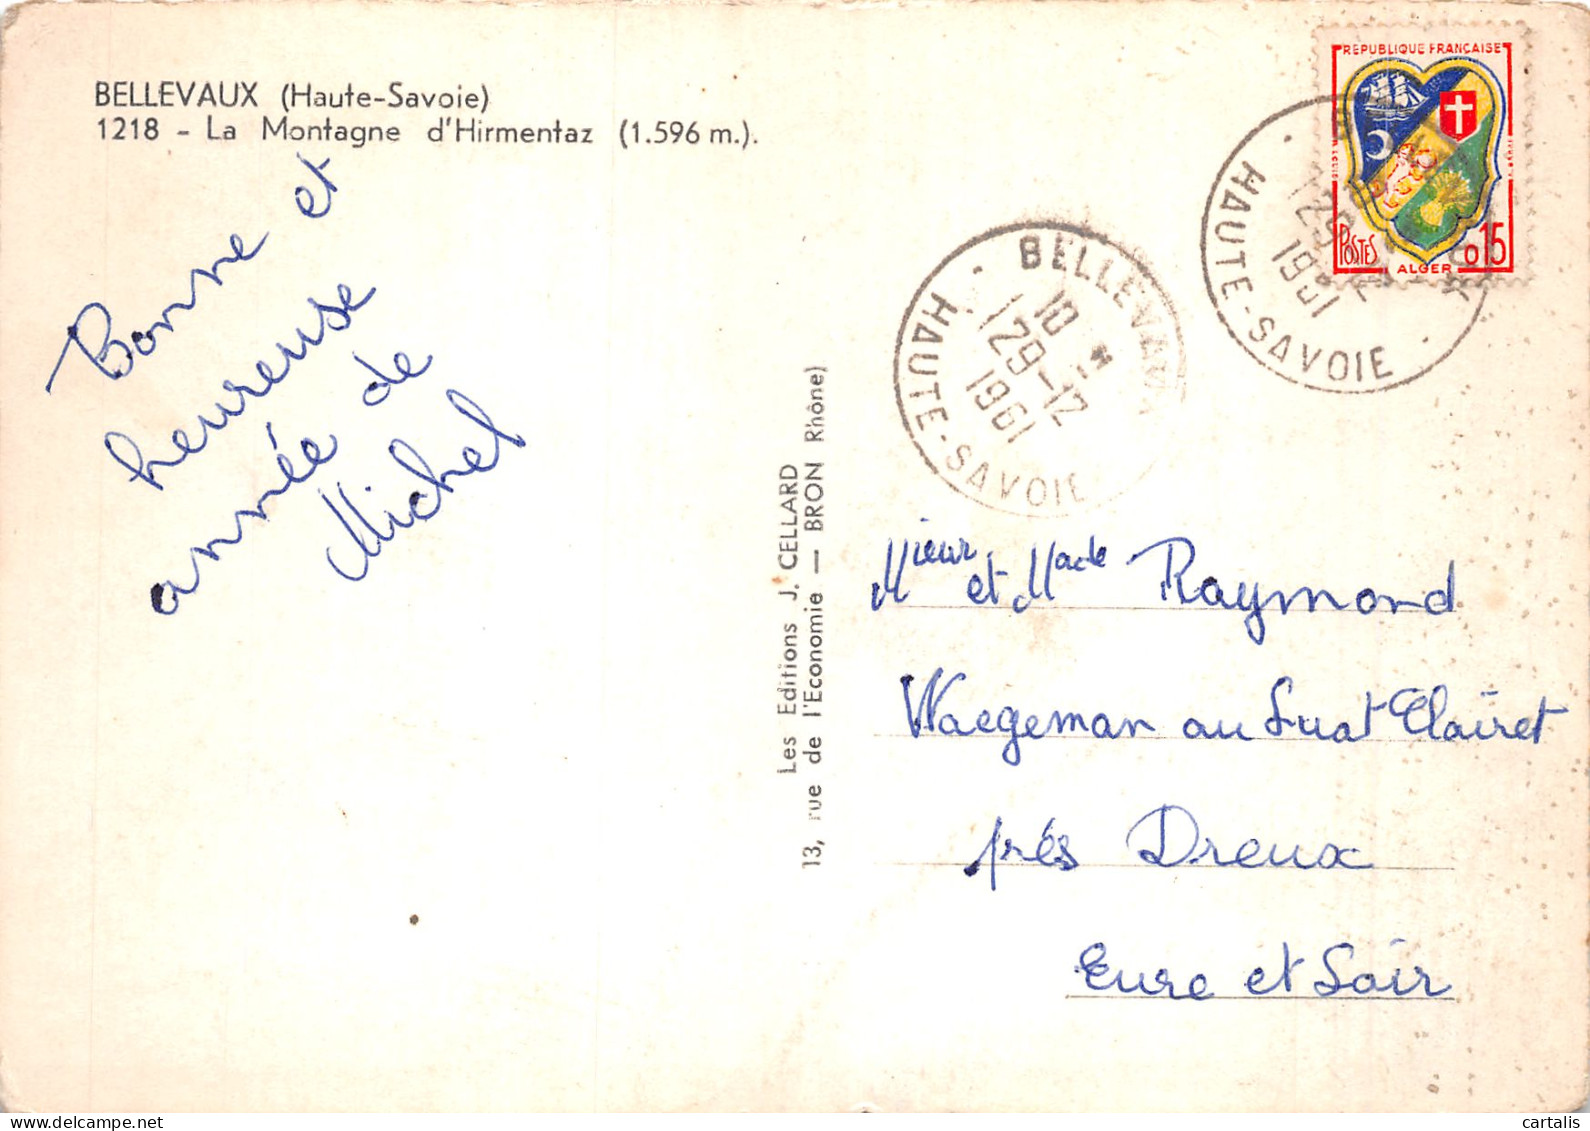 BELLEVAUX (Haute-Savoie)
1218 - La Montagne d'Hirmentaz (1.596 m.).
Bonne et
heureuse
année de
Michel
Les Editions J. CELLARD
13, rue de l'Economie — BRON Rhône)
REPUBLIQUE FRANÇAISE
POSTES
ALGER
0,15
HAUTE-SAVOIE
BELLEVAUX
10 H
29-12
1961
HAUTE-SAVOIE
Mieur et Made Raymond
Waegeman au Luat Clairet
prés Dreux
Eure et Loir
cartalis